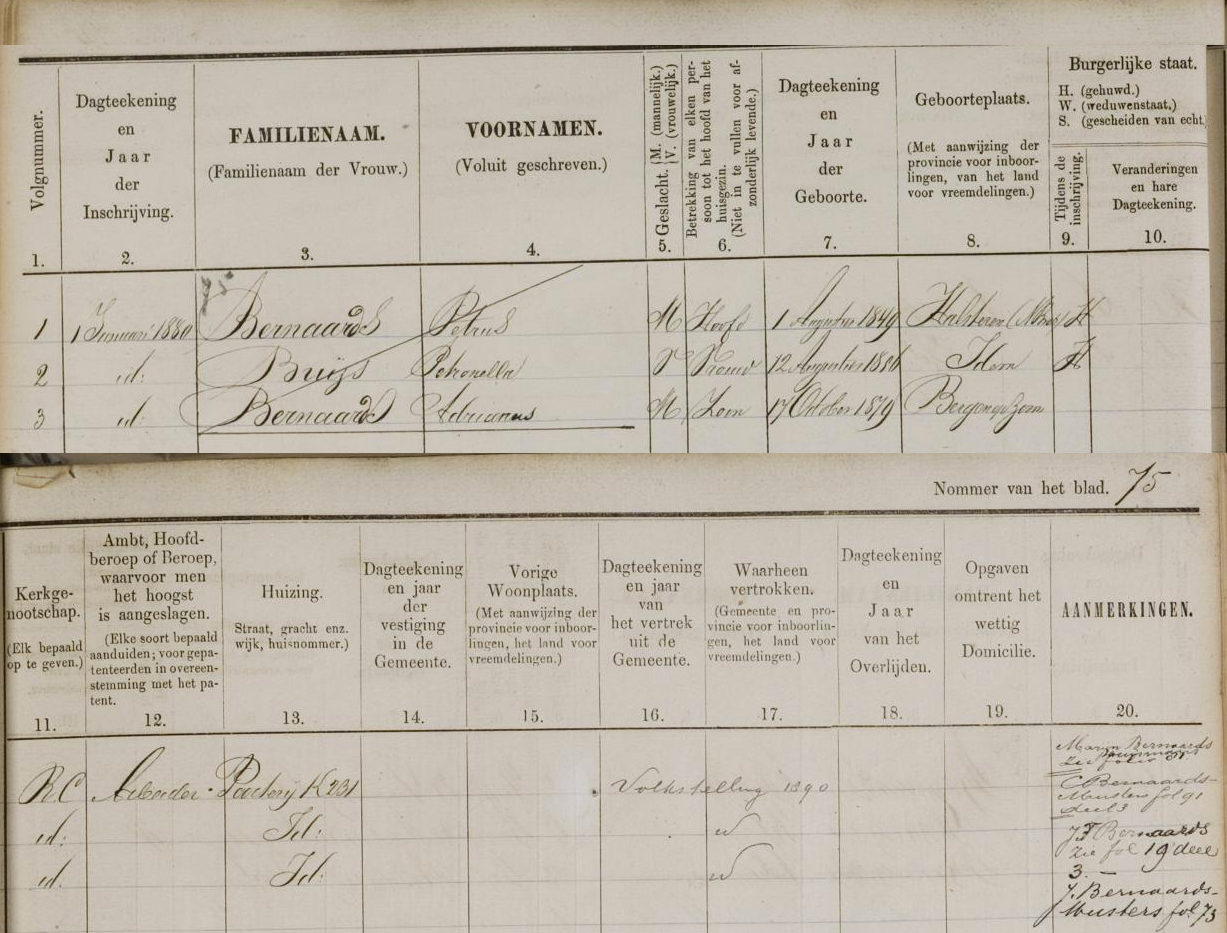 Volgnummer.
1.
Dagteekening
en
Jaar
der
Inschrijving.
2.
FAMILIENAAM.
(Familienaam der Vrouw.)
3.
VOORNAMEN.
(Voluit geschreven.)
4.
Geslacht. {M. (mannelijk.)
{V. (vrouwelijk.)
5.
Betrekking van elken per-
soon tot het hoofd van het
huisgezin.
(Niet in te vullen voor af-
zonderlijk levende.)
6.
Dagteekening
en
Jaar
der
Geboorte.
7.
Geboorteplaats.
(Met aanwijzing der
provincie voor inboor-
lingen, van het land
voor vreemdelingen.)
8.
Burgerlijke staat.
H. (gehuwd.)
W. (weduwenstaat.)
S. (gescheiden van echt.
Tijdens de
inschrijving.
9.
Veranderingen
en hare
Dagteekening.
10.
1 1 Januari 1880 Bernaards Petrus M Hoofd 1 Augustus 1849 Halsteren (NBra) H
2 id: Buijs Petronella V Vrouw 12 Augustus 1856 Idem H
3 id: Bernaards Adrianus M Zoon 17 October 1879 Bergenopzoom
Nommer van het blad. 75
Kerkge-
nootschap.
(Elk bepaald
op te geven.)
11.
Ambt, Hoofd-
beroep of Beroep,
waarvoor men
het hoogst
is aangeslagen.
(Elke soort bepaald
aanduiden; voor gepa-
tenteerden in overeen-
stemming met het pa-
tent.
12.
Huizing.
Straat, gracht enz.
wijk, huisnommer.)
13.
Dagteekening
en jaar
der
vestiging
in de
Gemeente.
14.
Vorige
Woonplaats.
(Met aanwijzing der
provincie voor inboor-
lingen, het land voor
vreemdelingen.)
15.
Dagteekening
en jaar
van
het vertrek
uit de
Gemeente.
16.
Waarheen
vertrokken.
(Gemeente en pro-
vincie voor inboorlin-
gen, het land voor
vreemdelingen.)
17.
Dagteekening
en
Jaar
van het
Overlijden.
18.
Opgaven
omtrent het
wettig
Domicilie.
19.
AANMERKINGEN.
20.
RC Arbeider Pottery K 231 Volkstelling 1890
id: Id: id
id. Id: id
Bernaards
zie folio
C Bernaards-
Musters fol 91
deel 3
J F Bernaards
zie fol 19 deel
3. —
J. Bernaards-
Musters fol 73